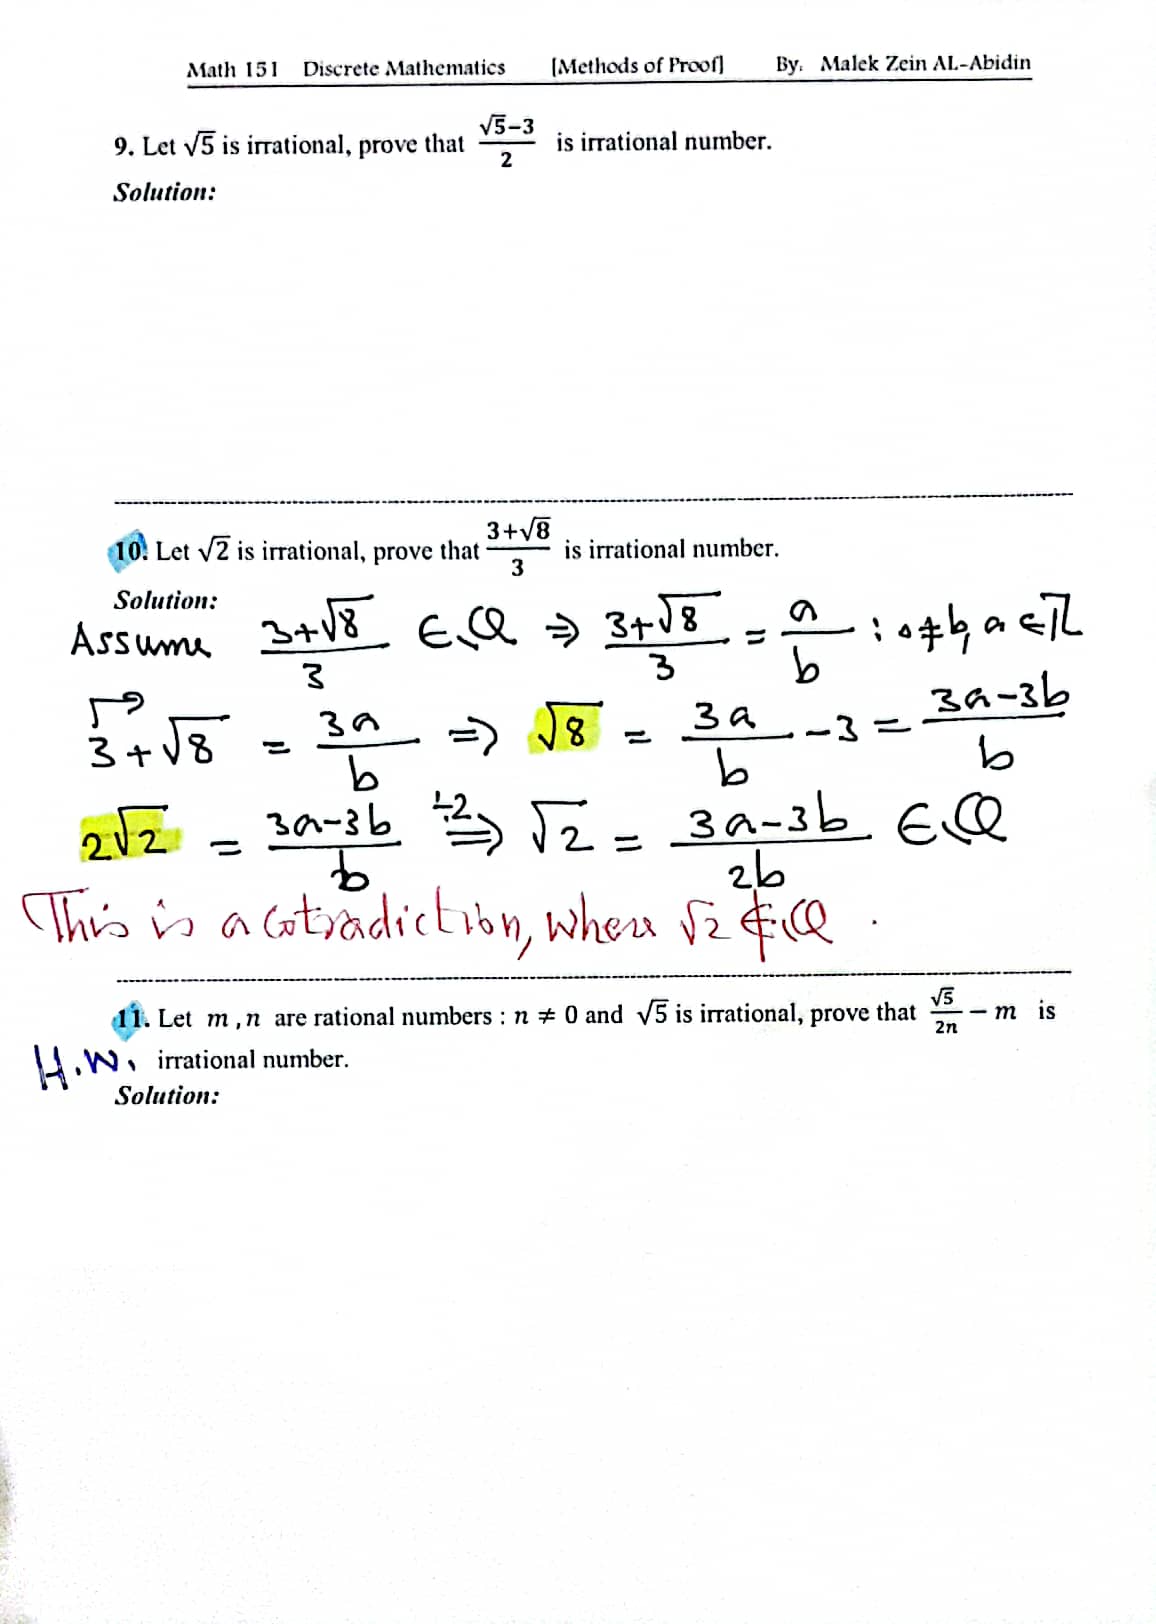 Math 151 Discrete Mathematics [Methods of Proof] By. Malek Zein AL-Abidin
9. Let √5 is irrational, prove that (√5−3)/2 is irrational number.
Solution:
10. Let √2 is irrational, prove that (3+√8)/3 is irrational number.
Solution:
Assume (3+√8)/3 ∈ Q ⇒ (3+√8)/3 = a/b ; 0≠b, a ∈ Z
3+√8 = 3a/b ⇒ √8 = 3a/b −3 = (3a−3b)/b
2√2 = (3a−3b)/b ÷2⇒ √2 = (3a−3b)/2b ∈ Q
This is a cotradiction, where √2 ∉ Q .
11. Let m ,n are rational numbers : n ≠ 0 and √5 is irrational, prove that √5/2n − m is
H.W. irrational number.
Solution: